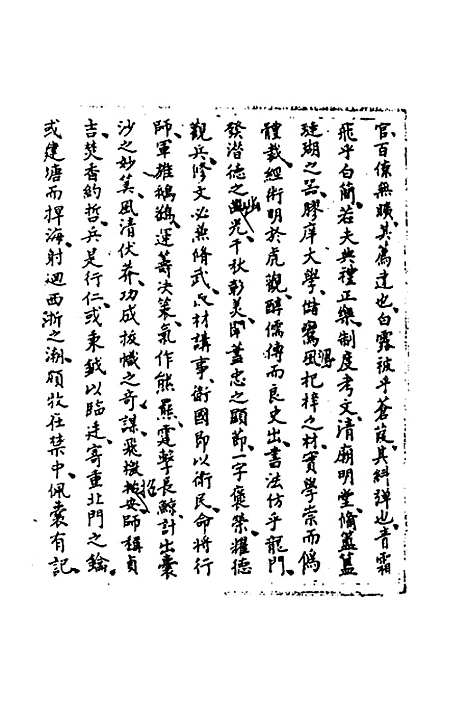 官百僚無曠其篤建也白露被乎蒼葭其糾彈也青霜
飛乎白簡若夫典禮正樂制度考文清廟明堂備簠簋
璉瑚之器膠庠大學儲鸞鳳杞梓之材實學崇而僞
體裁經術明於虎觀醇儒傳而良史出書法仿乎龍門
發潛德之幽光千秋彰美蓋忠之顯節一字褒榮耀德
觀兵修文必兼脩武材講事衛國即以衛民命將行
師軍雄鵝鸛運籌決策氣作熊羆霆擊長鯨計出囊
沙之妙筭風清伏莽功成拔幟之奇謀飛檄招安師稱貞
吉焚香約誓兵是行仁或秉鉞以臨边寄重北門之鑰
或建塘而捍海射迴西浙之潮頗牧在禁中佩囊有記